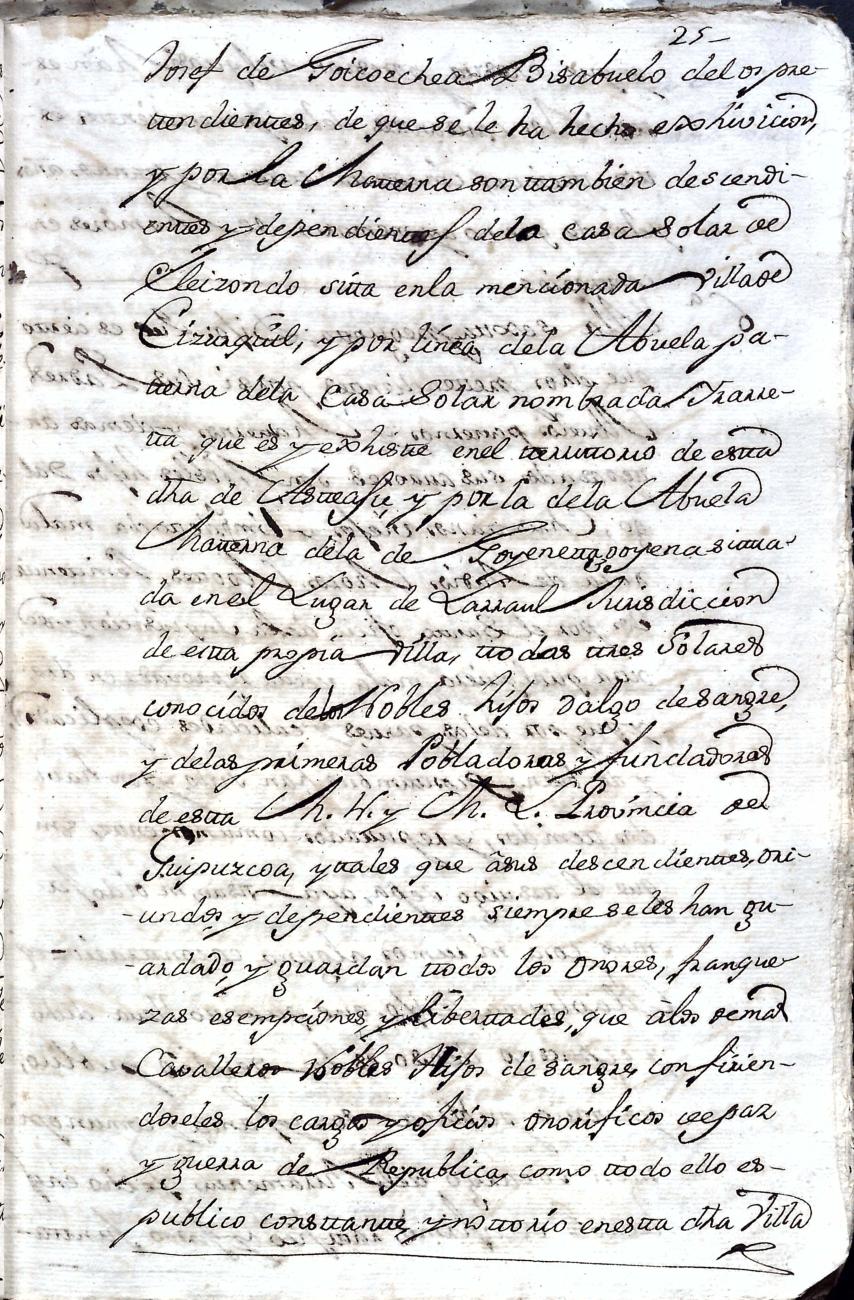 25-
Josef de Goicoechea Bisabuelo delos pre-
ttendienttes, de que se le ha hecho exhivicion,
y por la Matterna son ttambien descendi-
enttes y dependienttes dela casa solar de
Eleizondo sitta enla mencionada villa de
Cizurquil, y por linea dela Abuela pa-
tterna dela Casa Solar nombrada Yrarre-
tta que es y exhistte enel tterrittorio de estta
dha de Astteasu y por la dela Abuela
Matterna dela de Goyenettagoyena sittua-
da enel Lugar de Larraul Jurisdiccion
de estta propia villa, ttodas ttres Solares
conocidos delos Nobles hijos dalgo de sangre,
y delas primeras Pobladoras y fundadores
de estta M. N. y M. L. Provincia de
Guipuzcoa, y ttales que âsus descendienttes, ori-
undos y dependienttes siempre seles han gu-
ardado y guardan ttodos los onores, franque-
zas esempciones y liberttades, que âlos demas
Cavalleros Nobles Hijos de sangre, confirien-
doseles los cargos y oficios onorificos de paz
y guerra de Republica, como ttodo ello es-
publico consttantte y nottorio enestta dha Villa